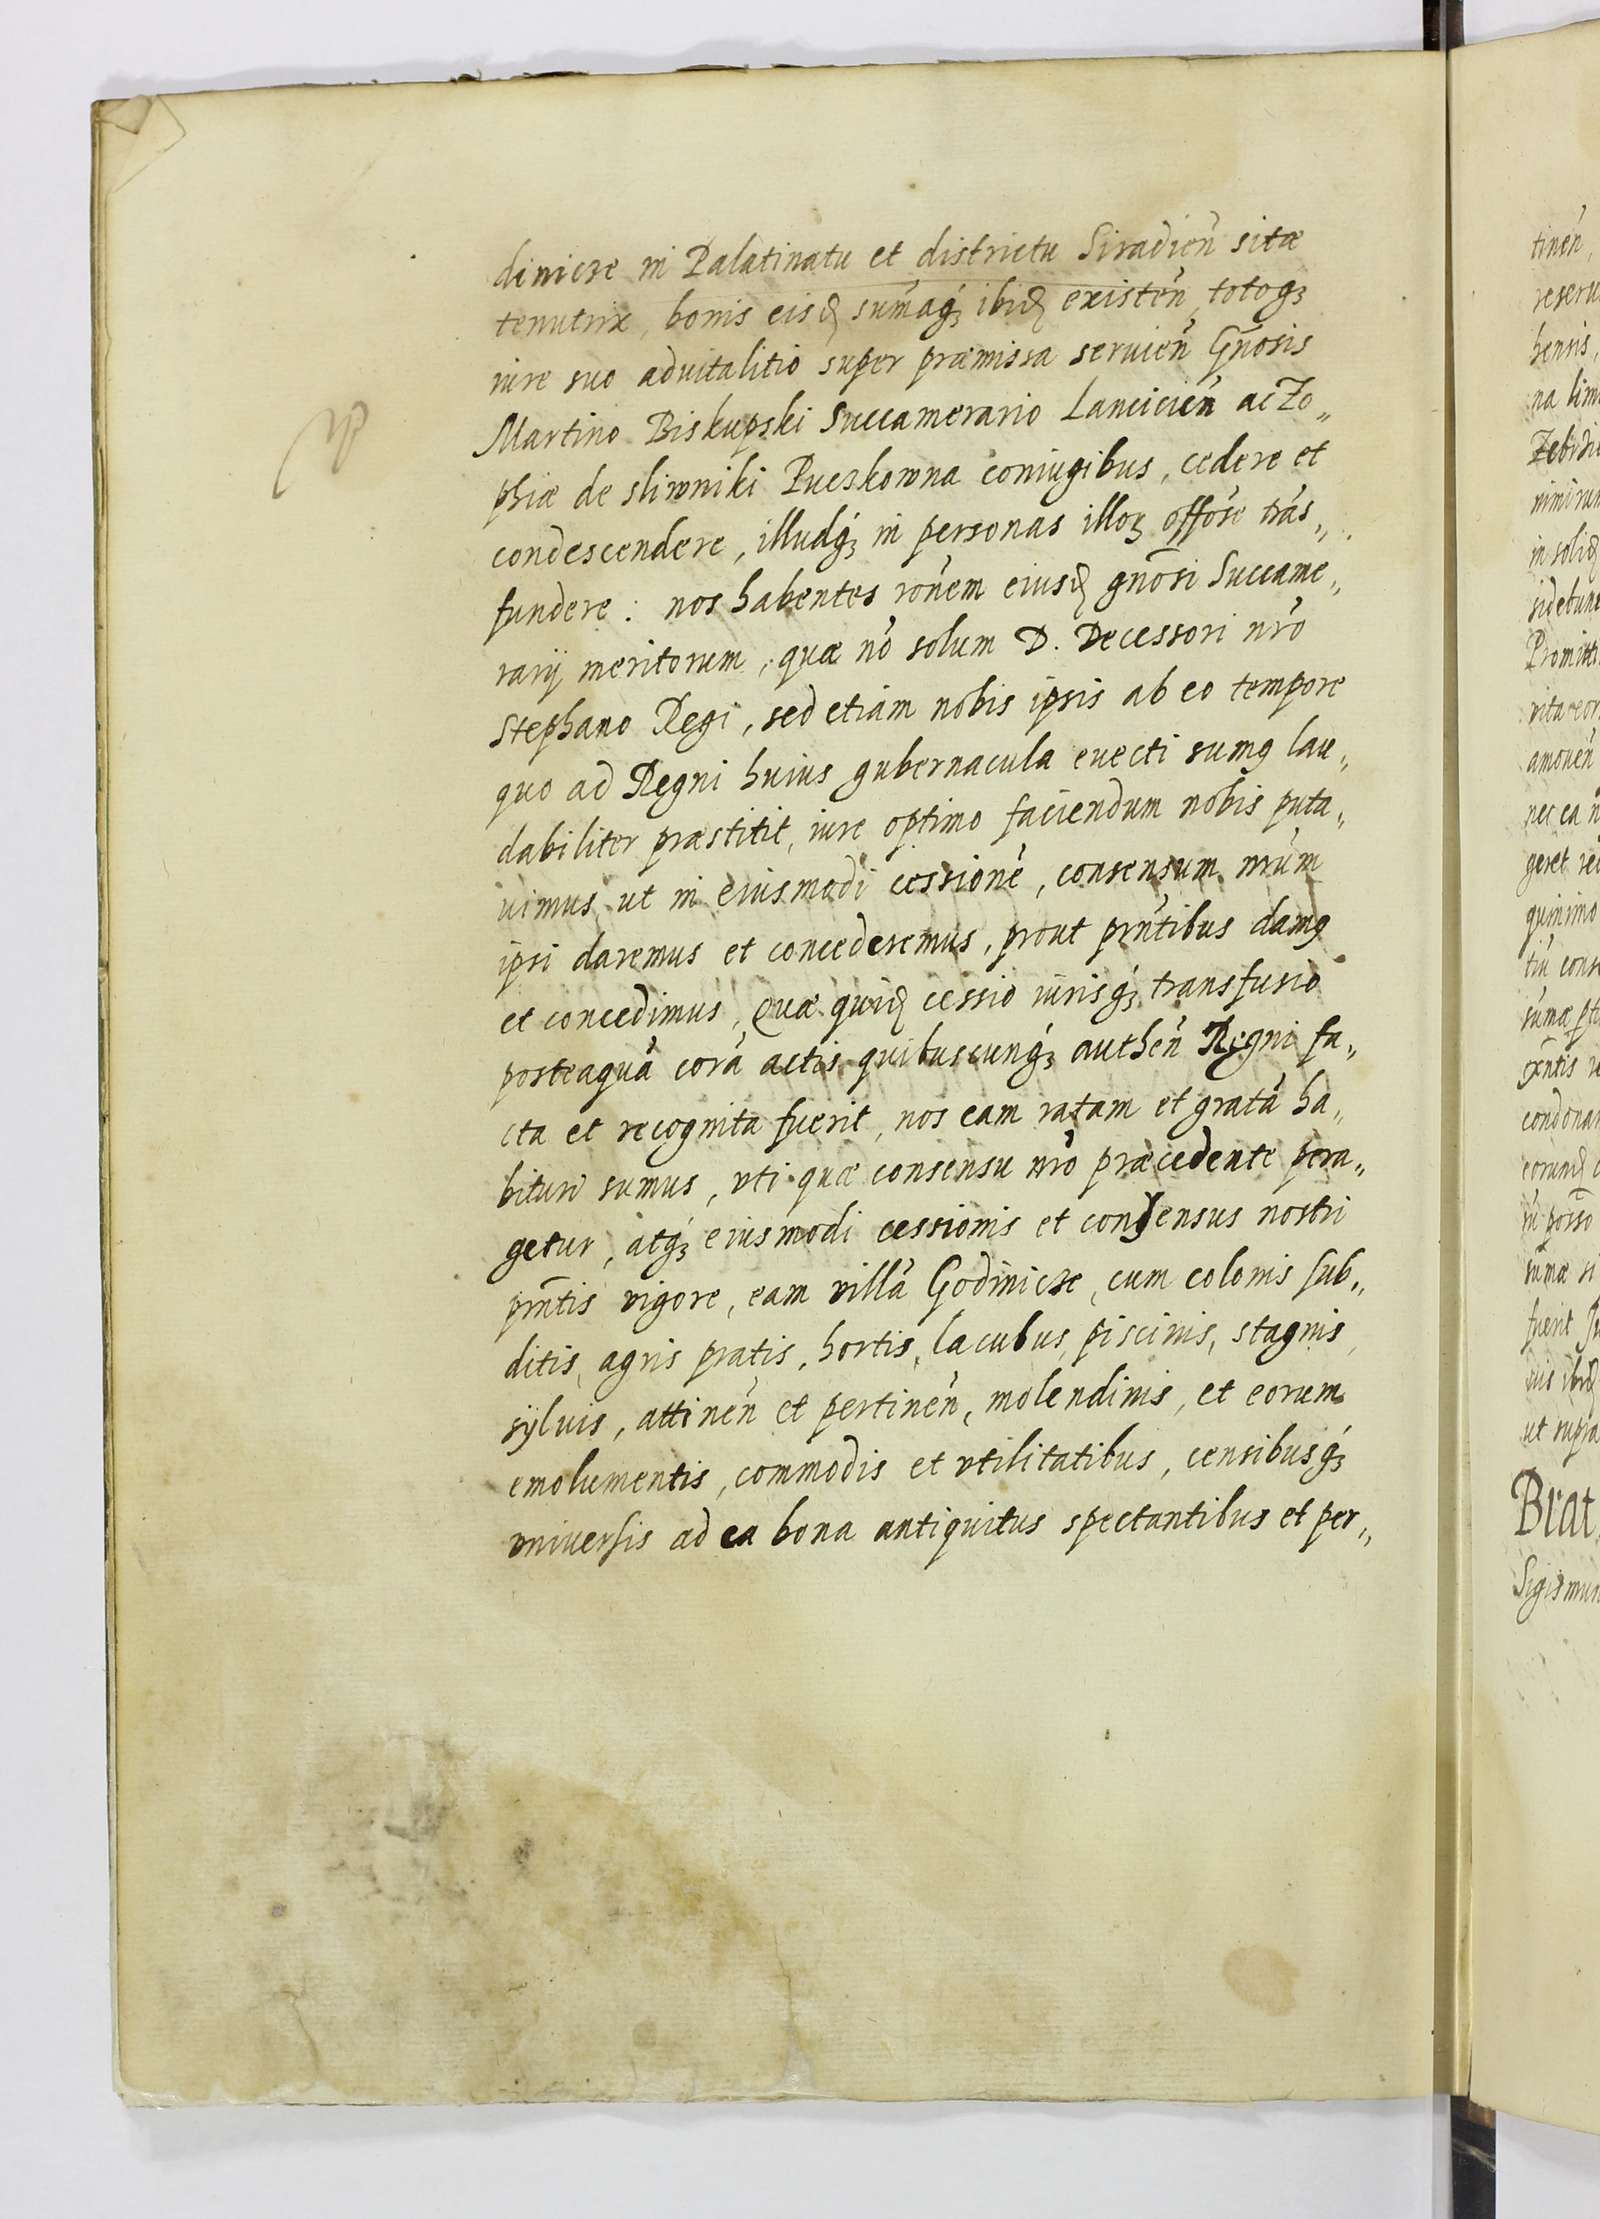 dinicze in Palatinatu et districtu Siradień sitæ
tenutrix, bonis eisd sum̃aq́ʒ ibid existeń, totoqʒ
iure suo aduitalitio super præmissa seruień Gñosis
Martino Biskupski Succamerario Lancicień ac Zo„
phiæ de sliwniki Puczkowna coniugibus, cedere et
condescendere, illudq́ʒ in personas illoʒ offōse trās„
fundere: nos habentes rōnem eiusd gñosi Succame„
rarij meritorum, quæ nō solum D. Decessori nr̃o
Stephano Regi, sed etiam nobis ipsis ab eo tempore
quo ad Regni huius gubernacula euecti sumꝯ lau„
dabiliter præstitit, iure optimo faciendum nobis puta„
uimus, ut in eiusmodi cessionē, consensum nr̃um
ipsi daremus et concederemus, prout pr̃ntibus damꝯ
et concedimus, Quæ quid cessio iurisq́ʒ transfusio
posteaquā corā actis quibuscunq́ʒ autheń Regni fa„
cta et recognita fuerit, nos eam ratam et gratā ha„
bituri sumus, vti quæ consensu nr̃o præcedente pera„
getur, atq́ʒ eiusmodi cessionis et consensus nostri
pr̃ntis vigore, eam villā Godinicze, cum colonis sub„
ditis, agris pratis, hortis, lacubus, piscinis, stagnis,
syluis, attineń et pertineń, molendinis, et eorum
emolumentis, commodis et vtilitatibus, censibusq́ʒ
vniuersis ad ea bona antiquitus spectantibus et per„
tineń,
reseru
hensis,
na lim
nimirum
in solid
Promitti
amoueń
nec ea n
geret
quinimo
condonar
fuerit
ut supra
Brat
Sigismun